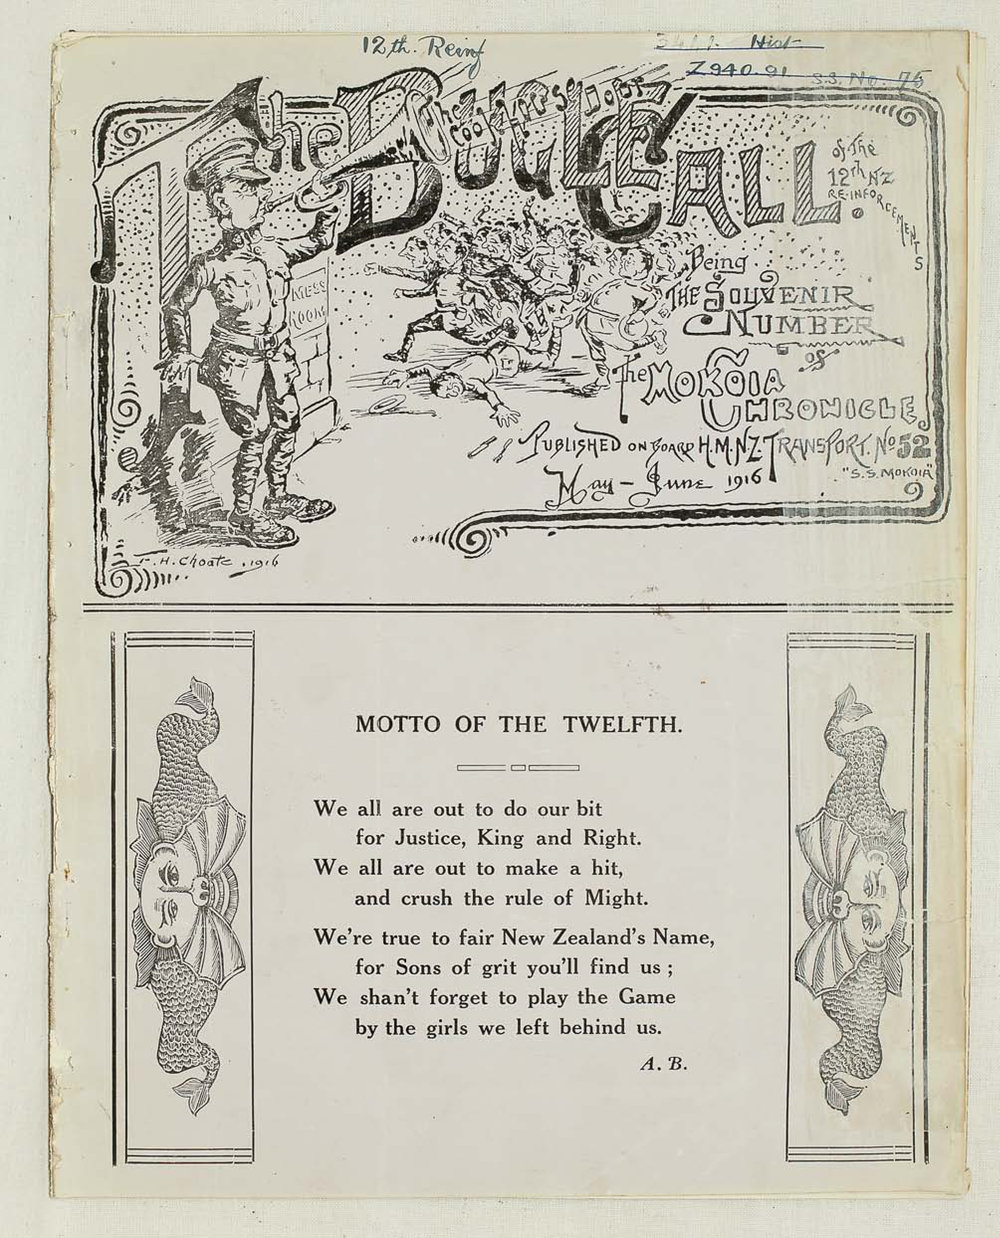 12th. Reinf
Hist
Z940.91 S.S. No. 75
The BUGLE CALL.
The Cookhouse Door
of The
12th NZ
RE-INFORCEMENTS
MESS
ROOM
Being
THE SOUVENIR
NUMBER
of
The MOKOIA
CHRONICLE
PUBLISHED ON BOARD H.M.NZ.TRANSPORT. No 52
"S.S. MOKOIA"
May - June 1916
F.H. Choate. 1916
MOTTO OF THE TWELFTH.
We all are out to do our bit
for Justice, King and Right.
We all are out to make a hit,
and crush the rule of Might.
We're true to fair New Zealand's Name,
for Sons of grit you'll find us ;
We shan't forget to play the Game
by the girls we left behind us.
A. B.